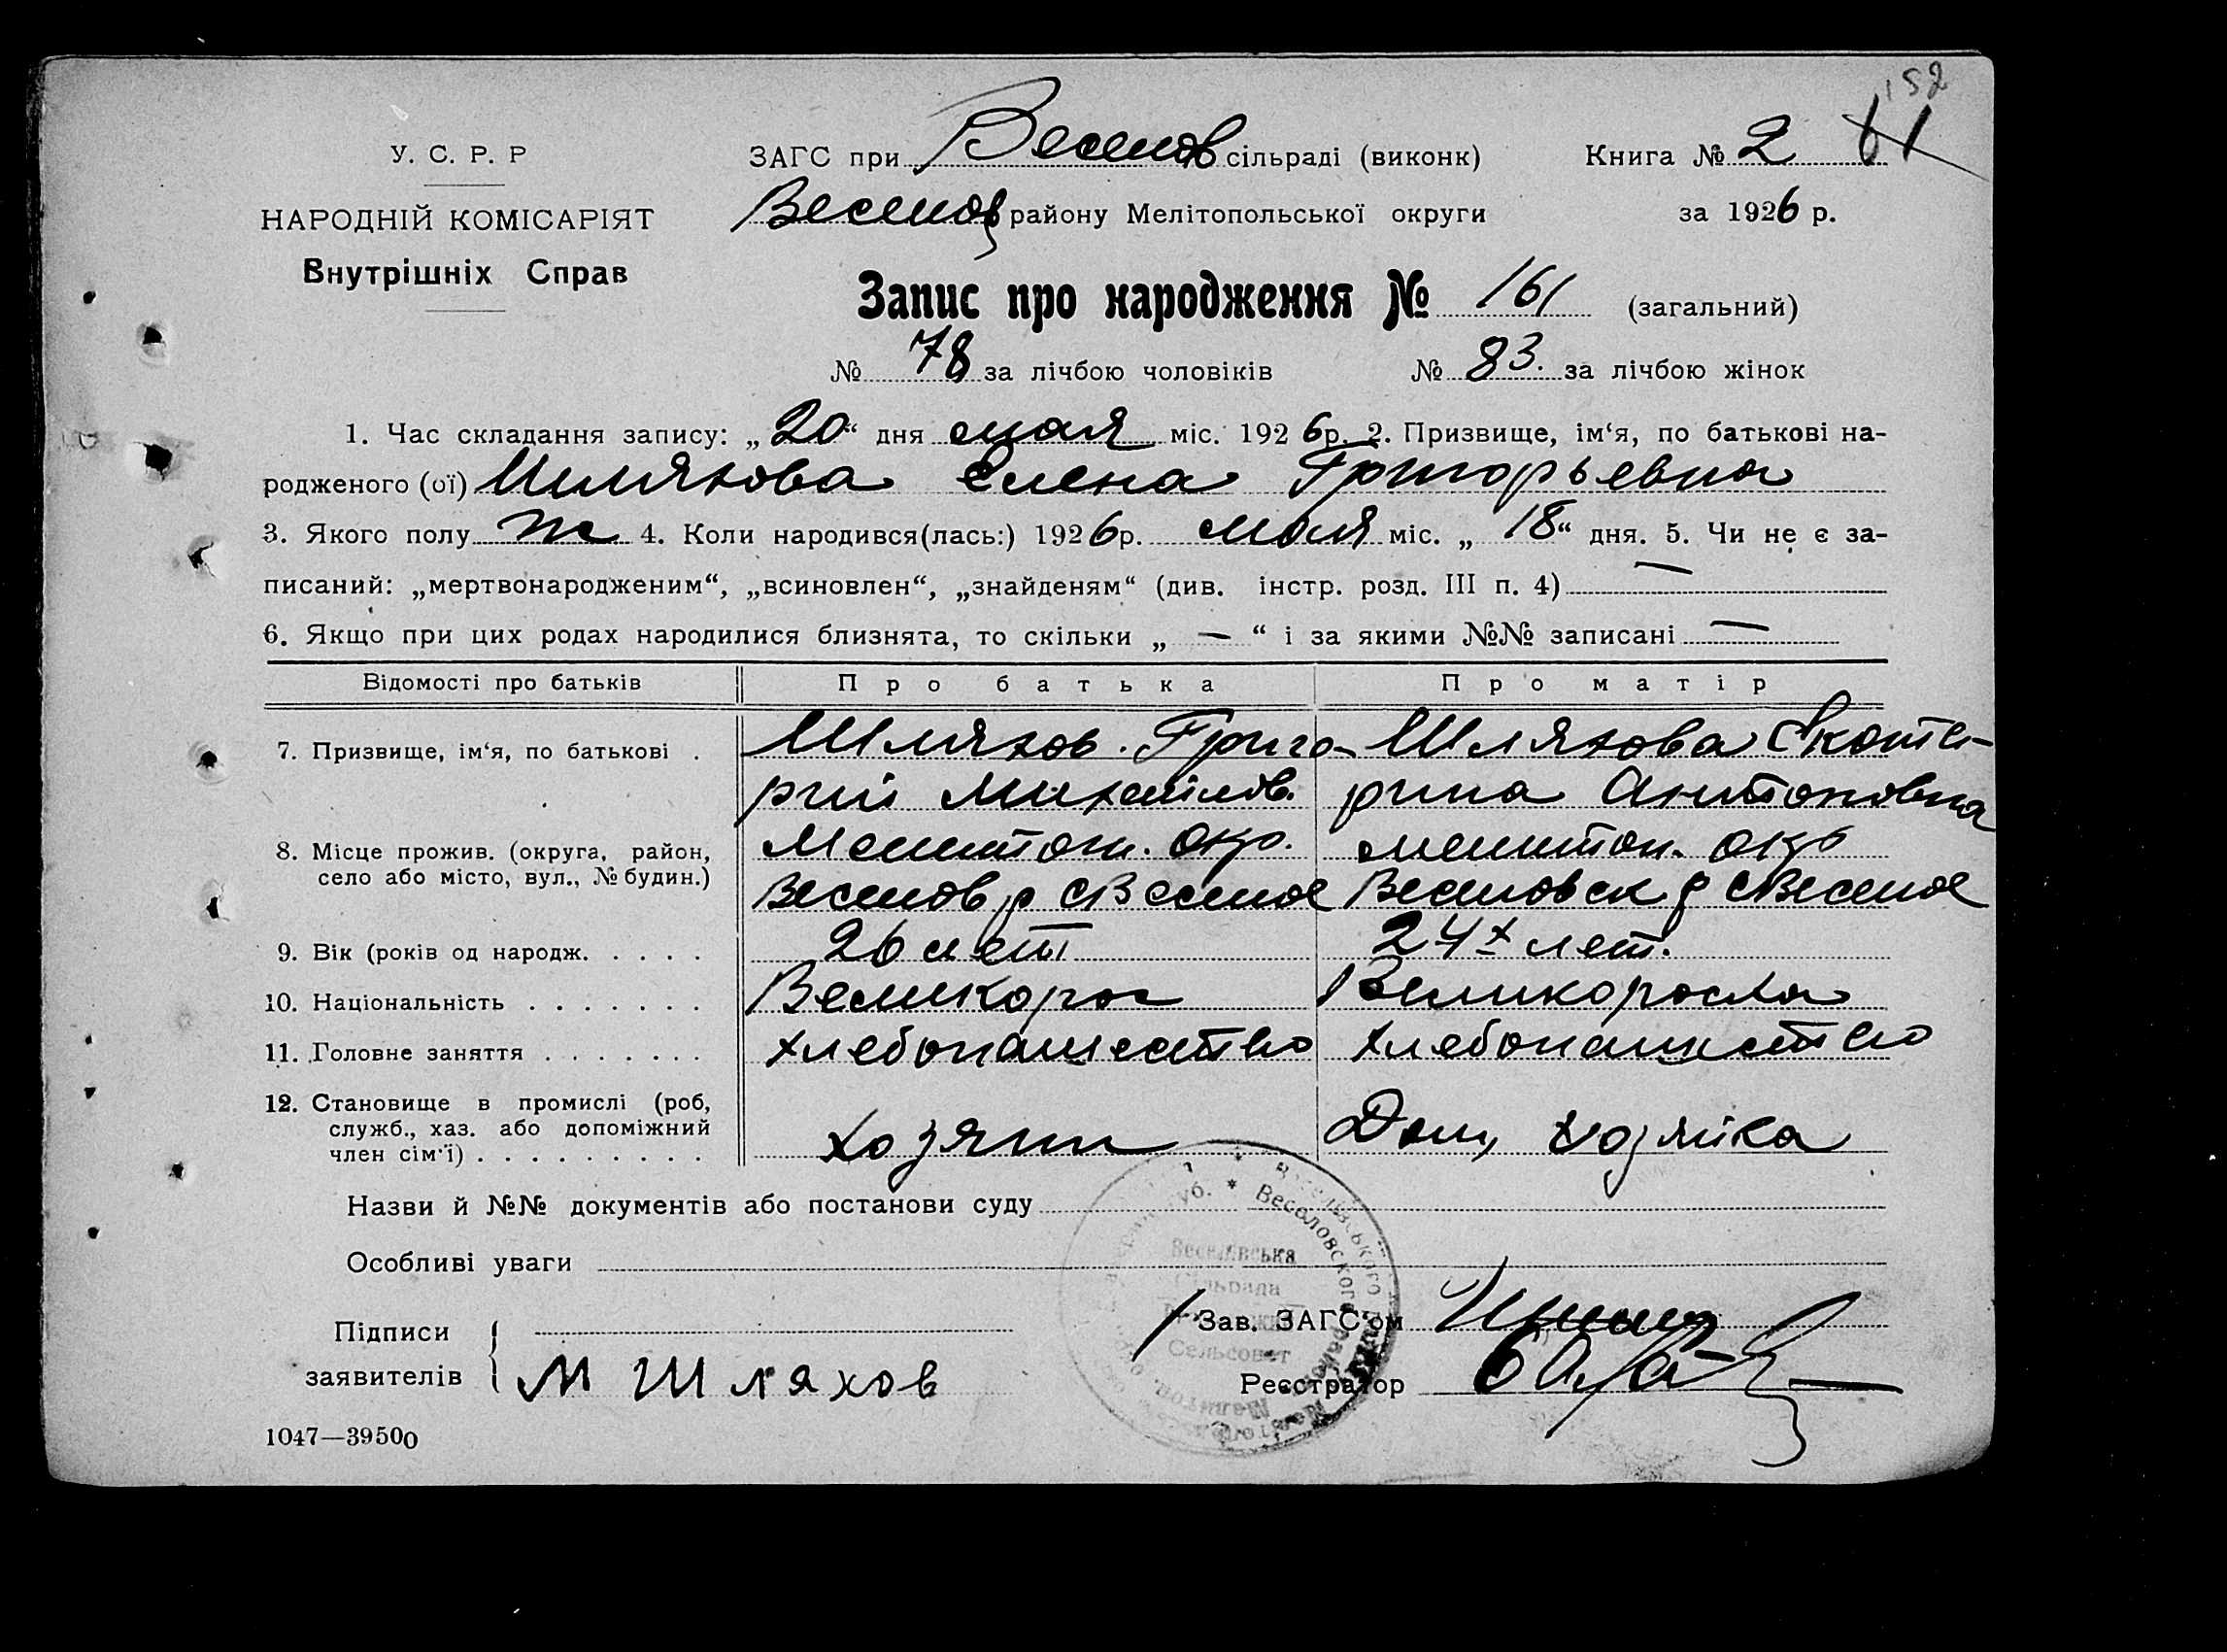 152
У. С. Р. Р
ЗАГС при Веселов сільраді (виконк)
Книга № 2 61
НАРОДНІЙ КОМІСАРІЯТ
Веселов району Мелітопольської округи
за 1926 р.
Внутрішніх Справ
Запис про народження № 161 (загальний)
№ 78 за лічбою чоловіків № 83. за лічбою жінок
1. Час складання запису: „20“ дня мая міс. 1926р. 2. Призвище, ім‘я, по батькові на-
родженого (ої) Шляхова Елена Григорьевна
3. Якого полу ж 4. Коли народився(лась:) 1926р. мая міс. „18“ дня. 5. Чи не є за-
писаний: „мертвонародженим“, „всиновлен“, „знайденям“ (див. інстр. розд. III п. 4) —
6. Якщо при цих родах народилися близнята, то скільки „ — “ і за якими №№ записані —
Відомості про батьків Про батька Про матір
7. Призвище, ім‘я, по батькові . Шляхов. Григо- Шляхова Екате-
рий Михайлов. рина Антоновна
8. Місце прожив. (округа, район, Мелитоп. окр. мелитоп. окр
село або місто, вул., № будин.) Веселов р с Веселое Веселовск р с Веселое
9. Вік (років од народж. . . . . 26 лет 24х лет.
10. Національність . . . . . . . Великорос Великороска
11. Головне заняття . . . . . . . хлебопашество хлебопашество
12. Становище в промислі (роб,
служб., хаз. або допоміжний
член сім‘ї) . . . . . . . . . хозяин Дом, хозяйка
Назви й №№ документів або постанови суду
Особливі уваги
Веселівська
Сільрада
Сельсовет
Веселовского
Підписи
Зав. ЗАГС‘ом
заявителів М Шляхов
Реєстратор
1047—39500